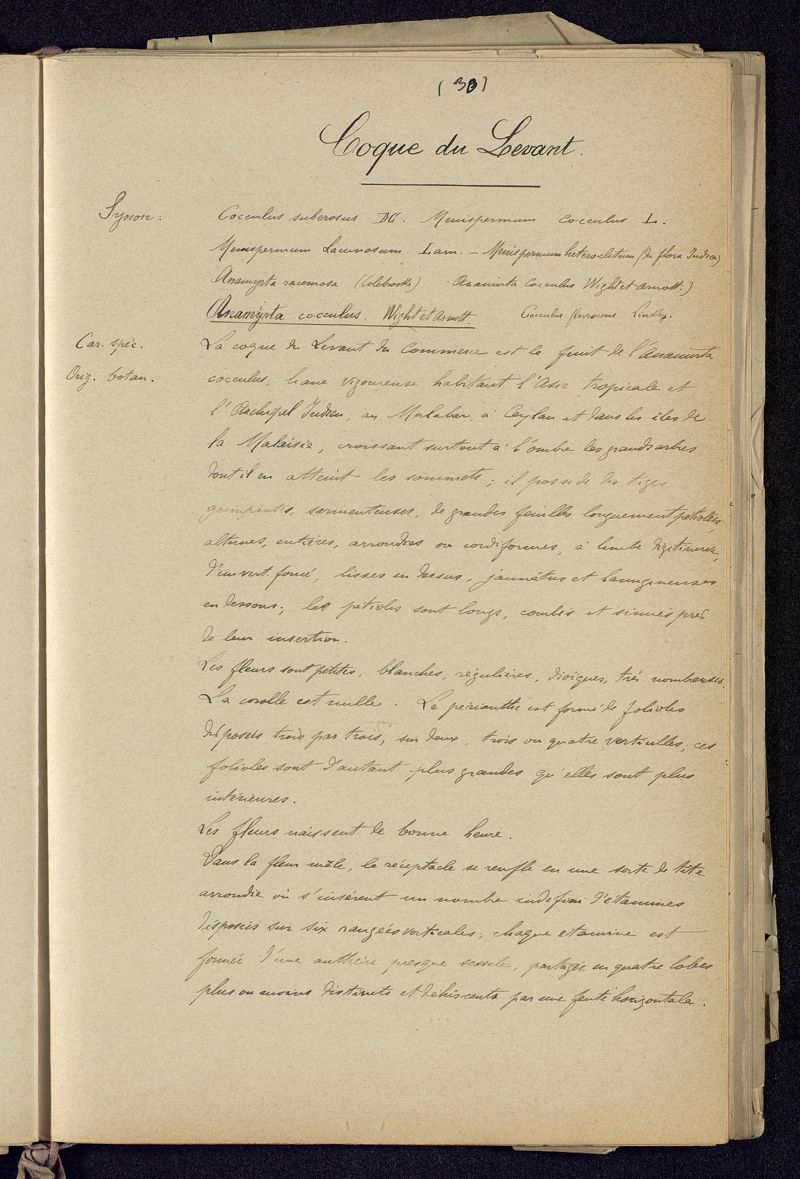 (30)
Coque du Levant.
Synon: Cocculus suberosus DC. Menispermum cocculus L.
Menispermum Lacunosum Lam. – Menispermum heteroclitum (du flora Indica)
Anamyrta racemosa (Colebrooke) Anamirta cocculus Wight et arnott.)
Anamyrta cocculus. Wight et Arnott. Cocculus flavescens Lindley.
Car. spéc. La coque de Levant du Commerce est le fruit de l'anamirta
Orig. botan. cocculus, liane vigoureuse habitant l'Asie tropicale et
l'Archipel Indien, au Malabar, à Ceylan et dans les îles de
la Malaisie, croissant surtout à l'ombre les grands arbres
dont il en atteint les sommets; il possède des tiges
grimpantes, sarmenteuses, de grandes feuilles longuement petiolées,
alternes, entières, arrondies ou cordiformes, à limbe digitinerve,
d'un vert foncé, lisses en dessus, jaunâtres et lanugineuses
en dessous; les petioles sont longs, courbés et sinués près
de leur insertion.
Les fleurs sont petites, blanches, régulières, dioïques, très nombreuses.
La corolle est nulle. Le périanthe est formé de folioles
disposées trois par trois, sur deux, trois ou quatre verticilles; ces
folioles sont d'autant plus grandes qu'elles sont plus
intérieures.
Les fleurs naissent de bonne heure.
Dans la fleur mâle, le réceptacle se renfle en une sorte de tête
arrondie où s'insèrent un nombre indefini d'étamines
disposées sur six rangées verticales; chaque etamine est
formée d'une anthère presque sessile, partagée en quatre lobes
plus ou moins distincts et dehiscents par une fente horizontale.